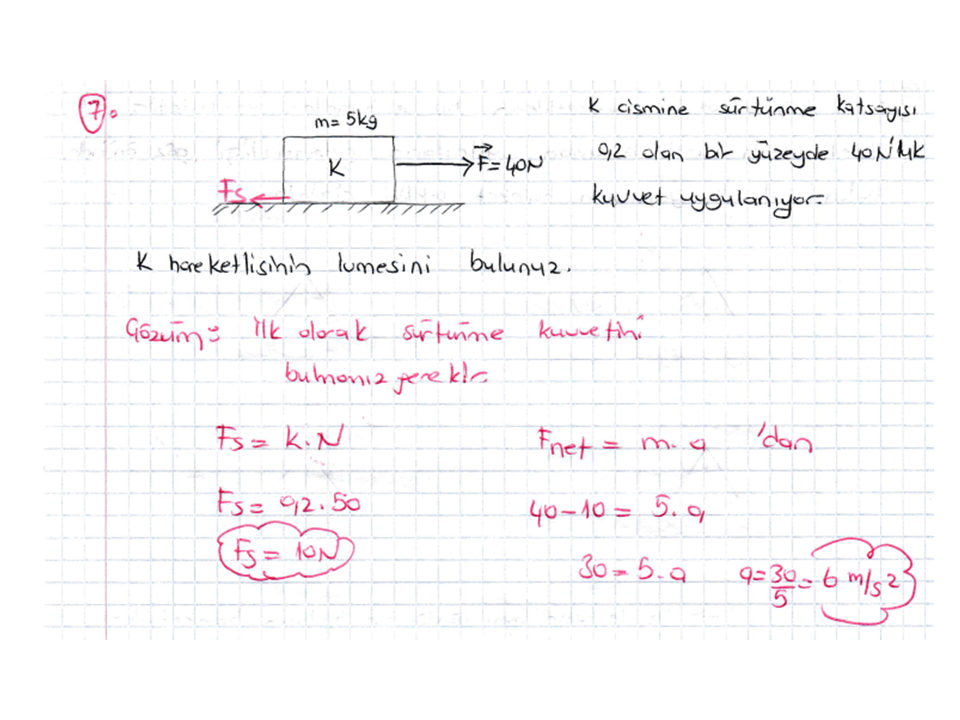 7.
m= 5kg
K
F= 40N
Fs
K cismine sürtünme katsayısı
0,2 olan bir yüzeyde 40N'luk
kuvvet uygulanıyor.
K hareketlisinin ivmesini bulunuz.
Çözüm: İlk olarak sürtünme kuvvetini
bulmamız gerekir.
Fs = k.N
Fs = 0,2.50
Fs = 10N
Fnet = m.a 'dan
40-10 = 5.a
30 = 5.a a=30/5=6 m/s²